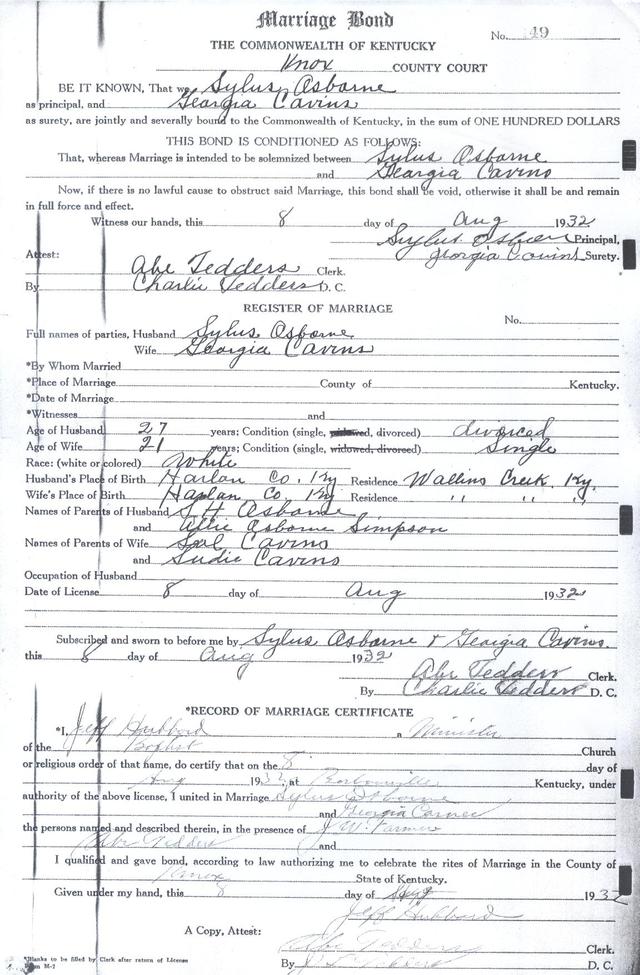 Marriage Bond
No. 49
THE COMMONWEALTH OF KENTUCKY
Knox COUNTY COURT
BE IT KNOWN, That we Sylus Osborne
as principal, and Georgia Cavins
as surety, are jointly and severally bound to the Commonwealth of Kentucky, in the sum of ONE HUNDRED DOLLARS
THIS BOND IS CONDITIONED AS FOLLOWS:
That, whereas Marriage is intended to be solemnized between Sylus Osborne
and Georgia Cavins
Now, if there is no lawful cause to obstruct said Marriage, this bond shall be void, otherwise it shall be and remain
in full force and effect.
Witness our hands, this 8 day of Aug 1932
Sylus Principal,
Attest: Georgia Cavins Surety.
Abe Tedders Clerk.
By Charlie Tedders D. C.
REGISTER OF MARRIAGE
No.
Full names of parties, Husband Sylus Osborne
Wife Georgia Cavins
*By Whom Married
*Place of Marriage County of Kentucky.
*Date of Marriage
*Witnesses and
Age of Husband 27 years; Condition (single, widowed, divorced) divorced
Age of Wife 21 years; Condition (single, widowed, divorced) Single
Race: (white or colored) White
Husband's Place of Birth Harlan Co. Ky Residence Wallins Creek, Ky.
Wife's Place of Birth Harlan Co. Ky Residence " " "
Names of Parents of Husband Osborne
and Allie Osborne Simpson
Names of Parents of Wife Cavins
and Sudie Cavins
Occupation of Husband
Date of License 8 day of Aug 1932
Subscribed and sworn to before me by Sylus Osborne & Georgia Cavins.
this 8 day of Aug 1932
Abe Tedders Clerk.
By Charlie Tedders D. C.
*RECORD OF MARRIAGE CERTIFICATE
*I, Jeff Hubbard a Minister
of the Baptist Church
or religious order of that name, do certify that on the 8 day of
Aug 1932, at Barbourville Kentucky, under
authority of the above license, I united in Marriage Sylus Osborne
and Georgia
the persons named and described therein, in the presence of J. M. Farmer
Abe Tedders and
I qualified and gave bond, according to law authorizing me to celebrate the rites of Marriage in the County of
Knox State of Kentucky.
Given under my hand, this 8 day of Aug 1932
Jeff Hubbard
A Copy, Attest:
Abe Tedders Clerk.
By D. C.
*Blanks to be filled by Clerk after return of License
Form M-7